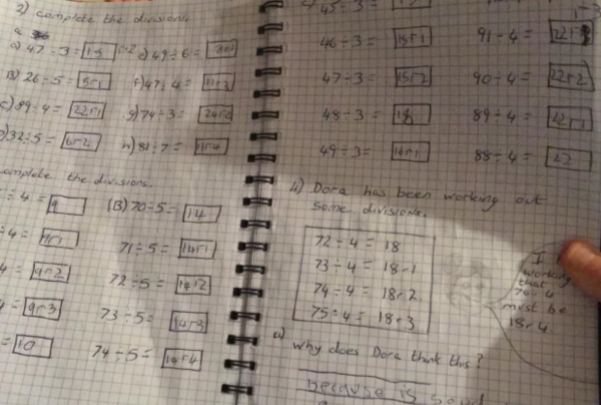 2) complete the divisions.
a) 47 ÷ 3 = 15 r2 e) 49 ÷ 6 = 8r1
B) 26 ÷ 5 = 5r1 f) 47 ÷ 4 = 11r3
c) 89 ÷ 4 = 22r1 g) 74 ÷ 3 = 24r2
32 ÷ 5 = 6r2 h) 81 ÷ 7 = 11r4
complete the divisions.
÷ 4 = 9 (B) 70 ÷ 5 = 14
÷ 4 = 9r1 71 ÷ 5 = 14r1
4 = 9r2 72 ÷ 5 = 14r2
= 9r3 73 ÷ 5 = 14r3
= 10 74 ÷ 5 = 14r4
45 ÷ 3 =
46 ÷ 3 = 15r1 91 ÷ 4 =
47 ÷ 3 = 15r2 90 ÷ 4 = 22r2
48 ÷ 3 = 16 89 ÷ 4 = 22r1
49 ÷ 3 = 16r1 88 ÷ 4 = 22
4) Dora has been working out
some divisions.
72 ÷ 4 = 18
73 ÷ 4 = 18r1
74 ÷ 4 = 18r2
75 ÷ 4 = 18r3
I
working
that
76 ÷ 4
must be
18r4
a) why does Dora think this?
Because is